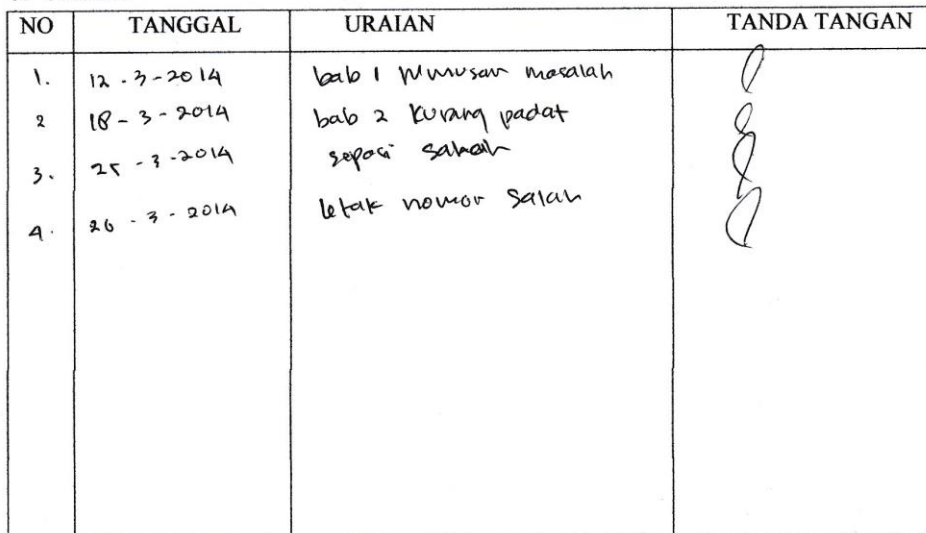 NO TANGGAL URAIAN TANDA TANGAN
1. 12 - 3 - 2014 bab 1 rumusan masalah
2 18 - 3 - 2014 bab 2 kurang padat
3. 25 - 3 - 2014 salah
4. 26 - 3 - 2014 letak nomor salah